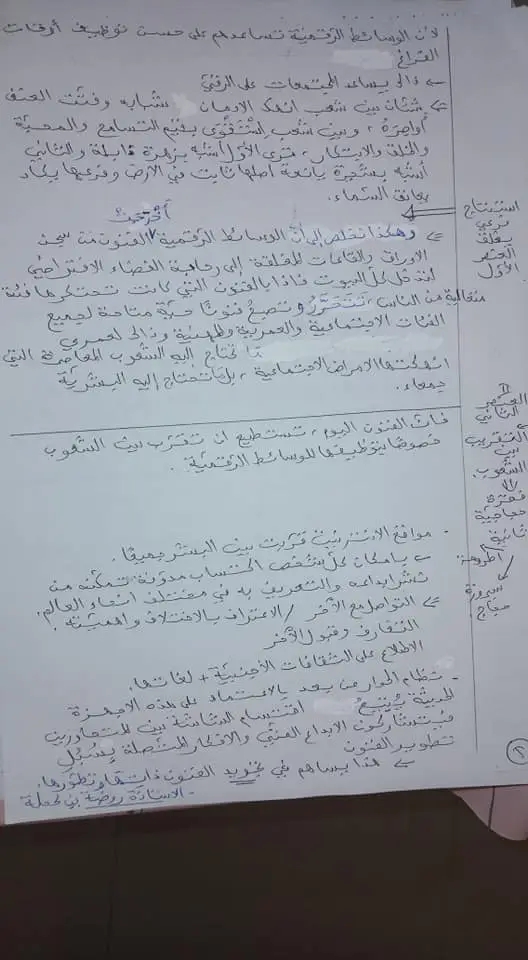 لأن الوسائط الرقمية تساعدهم على حسن توظيف أوقات
الفراغ
← ذلك يساعد المجتمعات على الرقي
⇐ شتان بين شعب انهك الادمان شبابه وفتت العنف
أواصره، وبين شعب استقوى بقيم التسامح والمحبة
والخلق والابتكار، فترى الأول أشبه بزهرة ذابلة والثاني
أشبه بشجرة يانعة أصلها ثابت في الأرض وفرعها يكاد
يعانق السماء.
أخرجت
⇐ وهكذا نخلص إلى أن الوسائط الرقمية الفنون من سجن
الأوراق والقاعات المغلقة إلى رحابة الفضاء الافتراضي
لتدخل كل البيوت فإذا بالفنون التي كانت تحتكرها فئة
مثقالية من الناس، تتحرر وتصبح فنونا حية متاحة لجميع
الفئات الاجتماعية والعمرية والمهنية وذلك لعمري
ما تحتاج إليه الشعوب المعاصرة التي
انهكتها الأمراض الاجتماعية، بل ما تحتاج إليه البشرية
جمعاء.
استنتاج
جزئي
يغلق
العنصر
الأول
العنصر
الثاني
التقريب
بين
الشعوب
فقرة
حجاجية
ثانية
أطروحة
سيرورة
حجاج
فإن الفنون اليوم، تستطيع أن تقرب بين الشعوب
خصوصا بتوظيفها للوسائط الرقمية.
- مواقع الانترنيت قربت بين البشر جميعا.
← بإمكان كل شخص اكتساب مدونة تمكنه من
نشر إبداعه والتعريف به في مختلف أنحاء العالم.
⇐ التواصل مع الآخر / الاعتراف بالاختلاف وأهميته.
التعارف وقبول الآخر
الاطلاع على الثقافات الأجنبية + لغاتها.
- نظام الحوار من بعد بالاعتماد على هذه الأجهزة
الحديثة يتيح اقتسام الشاشة بين المتحاورين
فيتشاركون الإبداع الفني والأفكار المتصلة بسبل
تطوير الفنون
← هذا يساهم في تجويد الفنون ذاتها وتطورها.
- الأستاذة روضة بن لحملة
٢